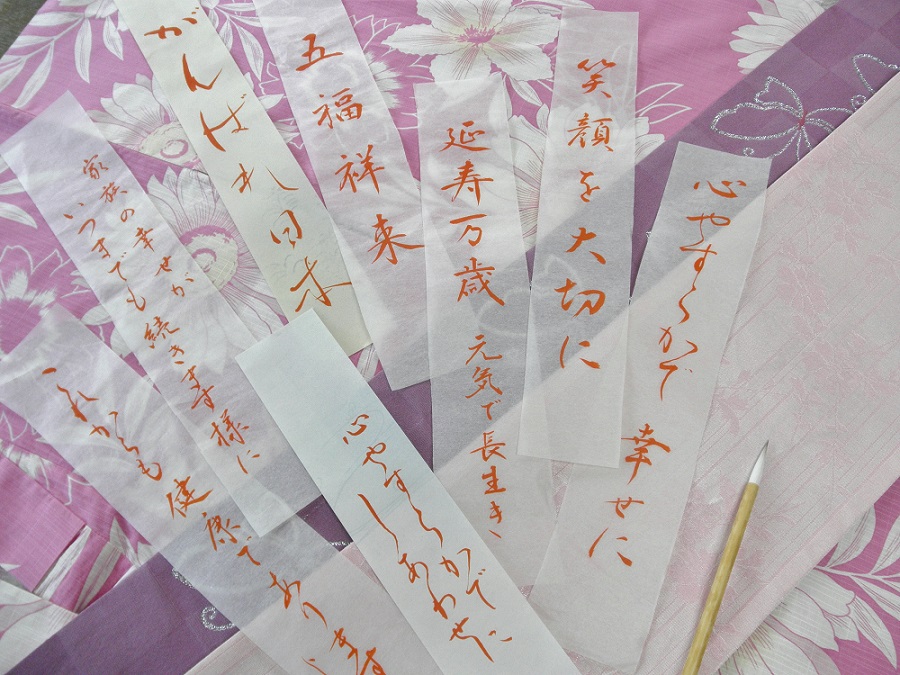 心やすらかで 幸せに
笑顔を大切に
延寿万歳 元気で長生き
五福祥来
がんばれ日本
家族の幸せが
いつまでも続きます様に
心やすらかで
しあわせに
これからも健康であり